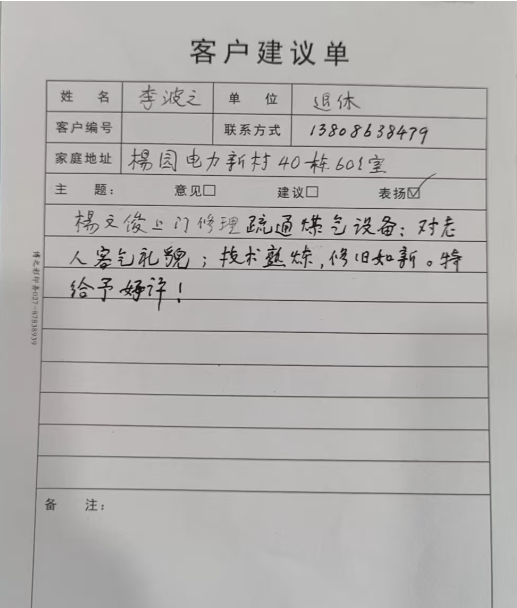 客户建议单
姓 名 李波之 单 位 退休
客户编号 联系方式 13808638479
家庭地址 楊园电力新村40栋601室
主 题: 意见□ 建议□ 表扬☑
楊文俊上门修理疏通煤气设备;对老
人客气礼貌;技术熟炼,修旧如新。特
给予好评!
备 注: